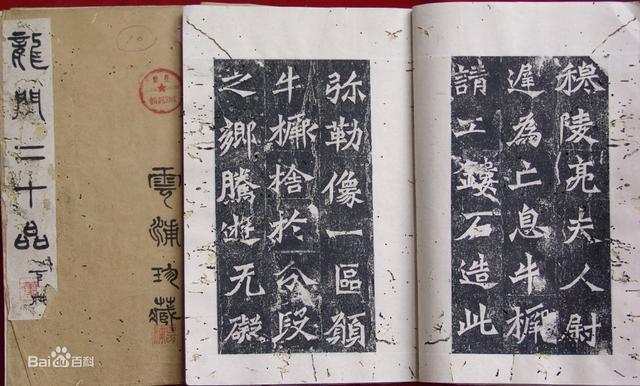 穆陵亮夫人尉
遲為亡息牛橛
請工鏤石造此
弥勒像一區願
牛橛捨於分段
之鄉騰遊无礙
雲浦珍藏
龍門二十品
Bai百科